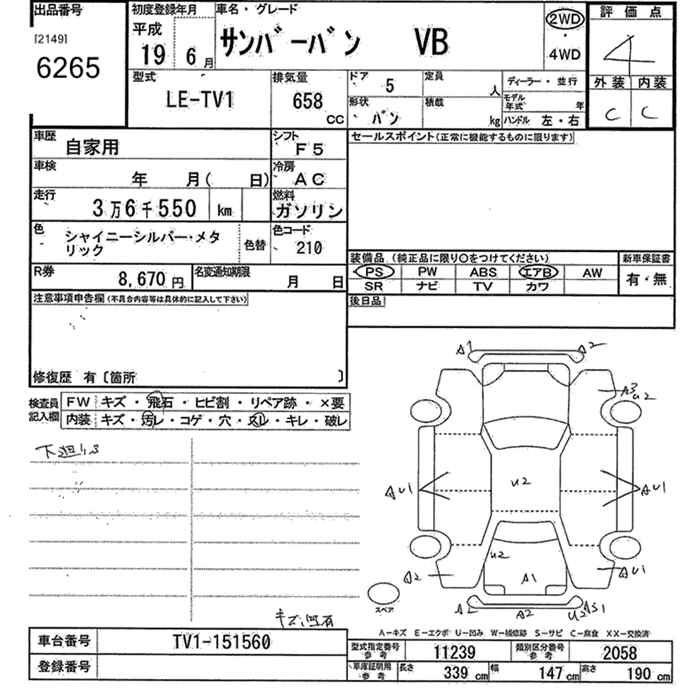 出品番号
[2149]
6265
初度登録年月
平成
19 6月
車名・グレード
サンバーバン VB
2WD
・
4WD
評価点
4
外装 内装
C C
型式
LE-TV1
排気量
658
CC
ドア
5
定員
人
ディーラー・並行
形状
バン
積載
kg
モデル年式
年
ハンドル 左・右
車歴
自家用
シフト
F5
車検
年 月( 日)
冷房
AC
走行
3万6千550 km
燃料
ガソリン
色
シャイニーシルバー・メタ
リック
色替
色コード
210
R券
8,670円
名変通知期限
月 日
セールスポイント(正常に機能するものに限ります)
装備品 (純正品に限り○をつけてください)
新車保証書
PS PW ABS エアB AW
有・無
SR ナビ TV カワ
後日品
注意事項申告欄(不具合内容等は具体的に記入して下さい)
修復歴 有〔箇所 〕
検査員
記入欄
FW キズ・飛石・ヒビ割・リペア跡・×要
内装 キズ・汚レ・コゲ・穴・スレ・キレ・破レ
A1 A2
A3
U2
AU1
U2
AU1
A2
U2
A1
AU1
A2
A2
U2
AS1
スペア
A-キズ E-エクボ U-凹み W-補修跡 S-サビ C-腐食 XX-交換済
車台番号
TV1-151560
登録番号
型式指定番号
参考
11239
類別区分番号
参考
2058
車庫証明用
参考
長さ
339 cm
幅
147 cm
高さ
190 cm